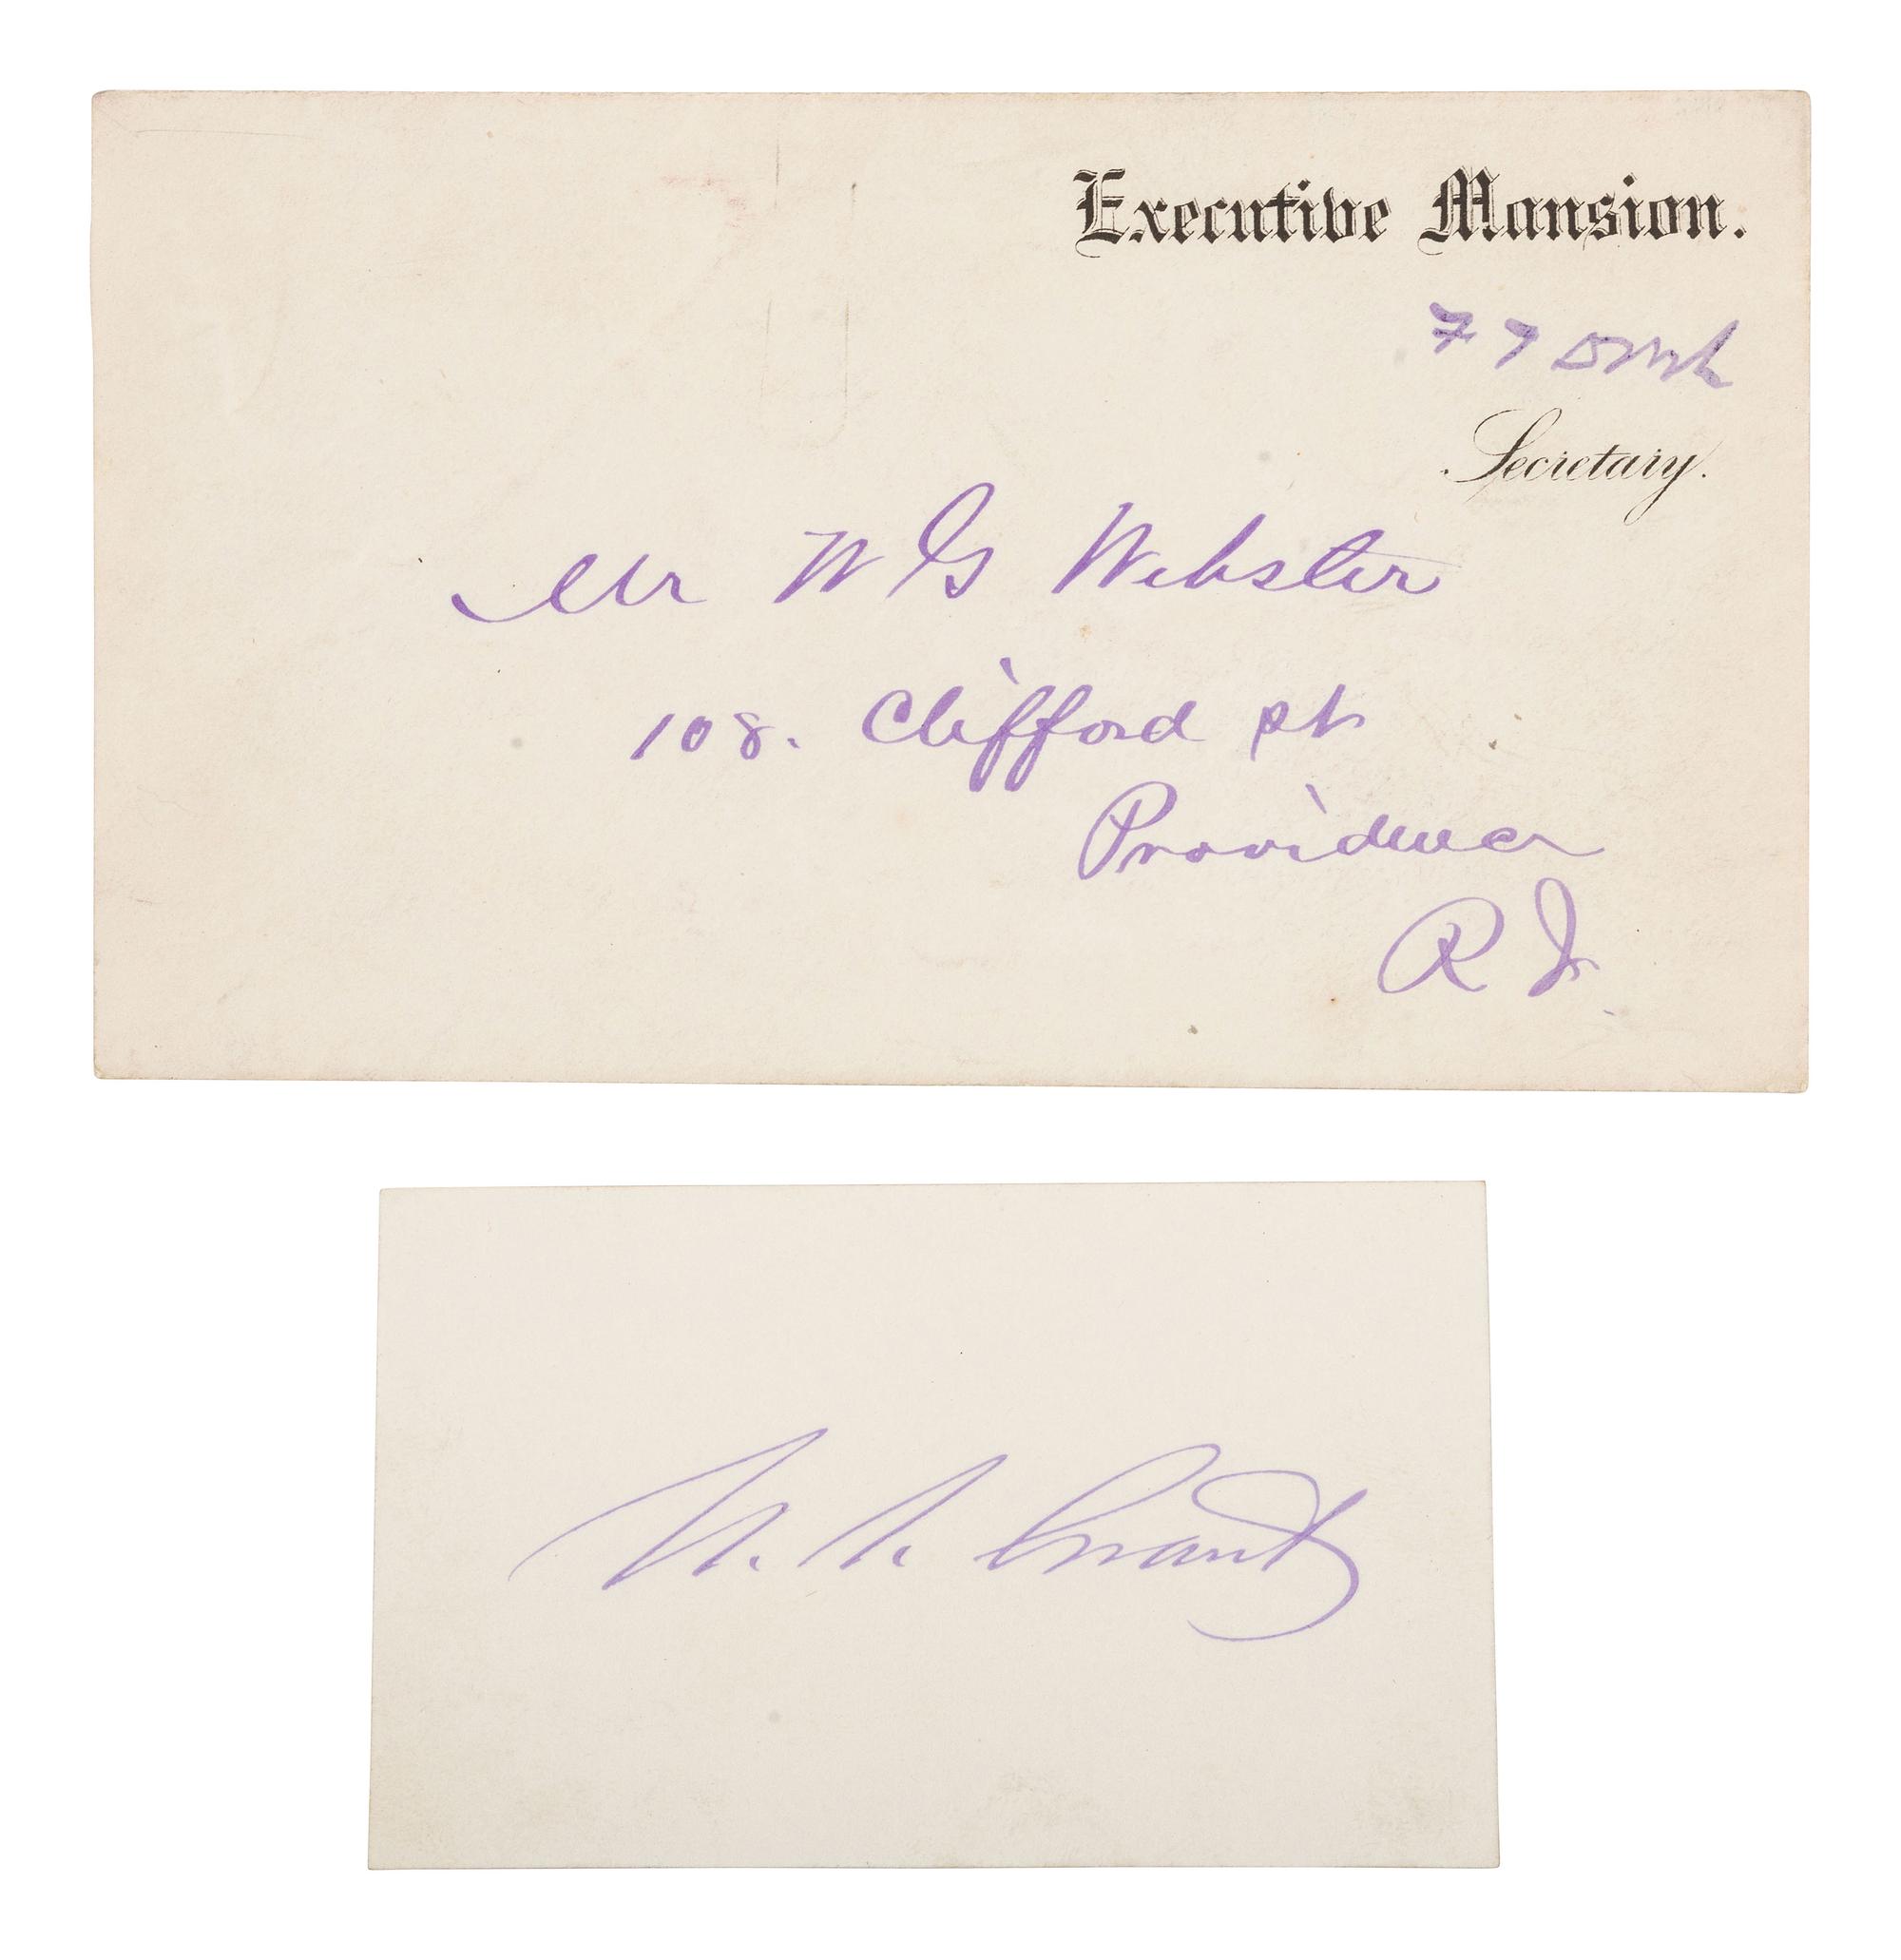 Executive Mansion.
Secretary.
Mr W G Webster
108. Clifford st
Providence
R I.
U. S. Grant